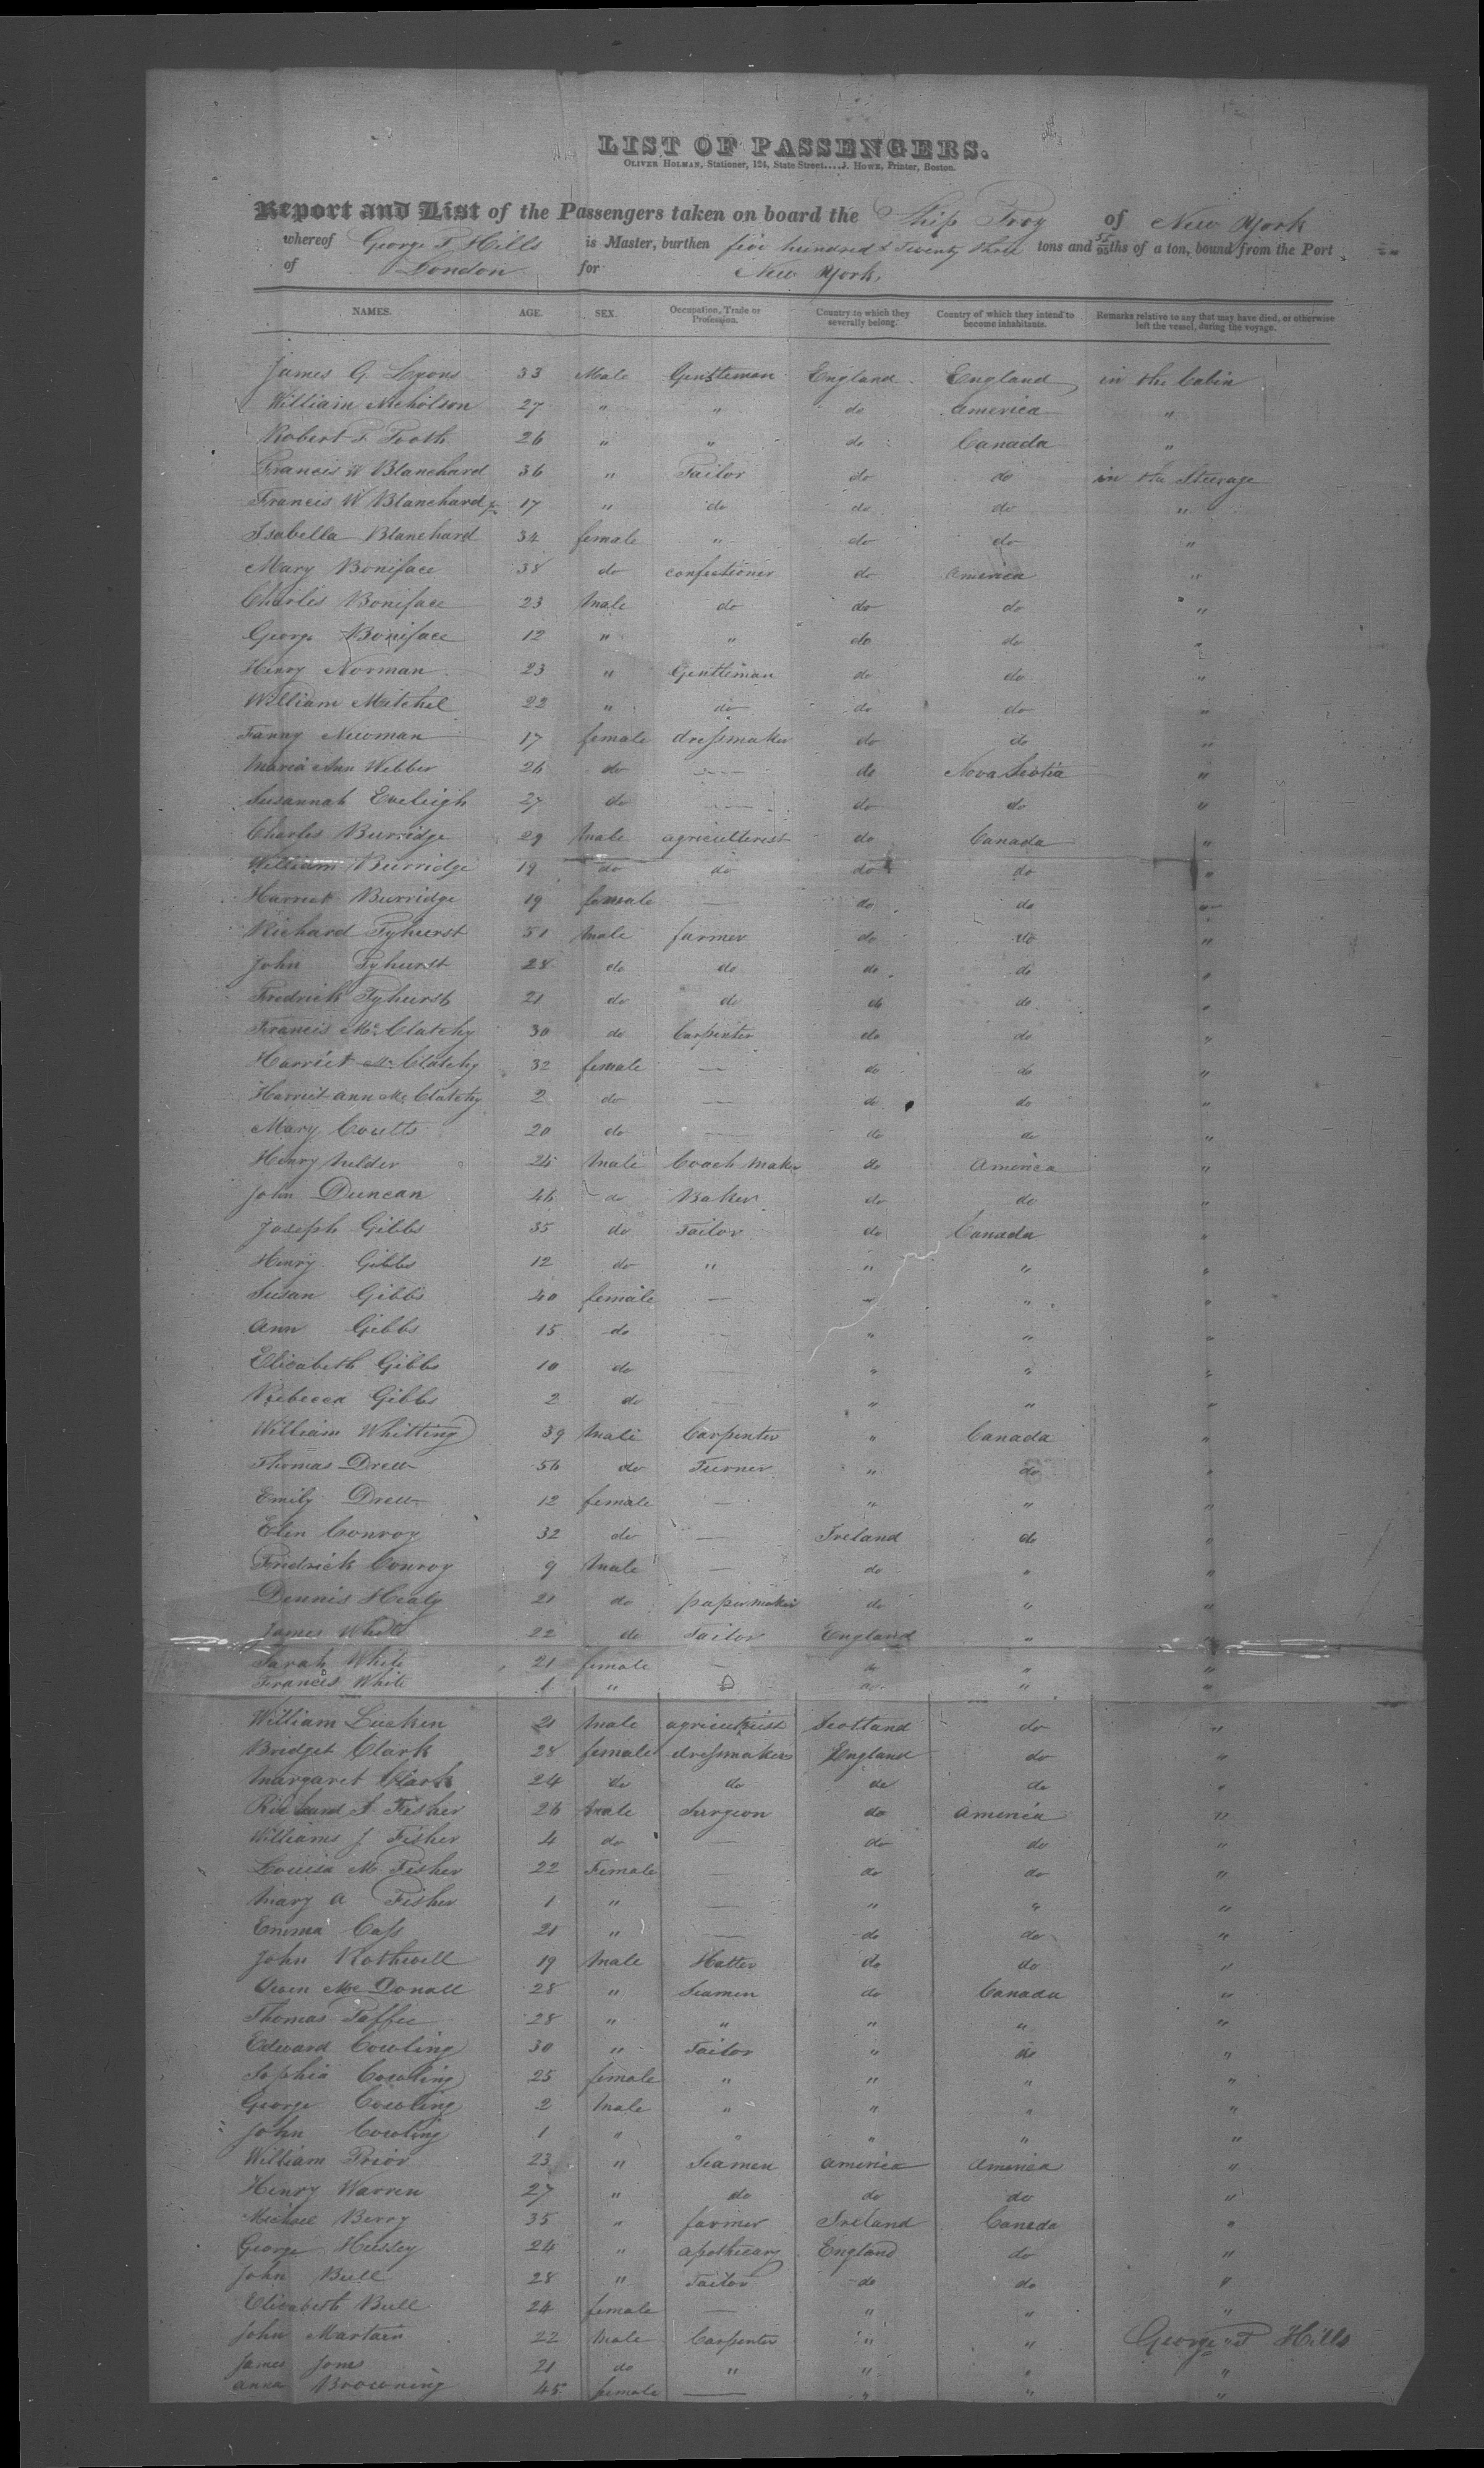 LIST OF PASSENGERS.
OLIVER HOLMAN, Stationer, 124, State Street....J. HOWE, Printer, Boston.
Report and List of the Passengers taken on board the Ship Troy of New York
whereof George T Hills is Master, burthen five hundred & Twenty three tons and 55/95ths of a ton, bound from the Port
of London for New York.
NAMES. AGE. SEX. Occupation, Trade or Profession. Country to which they severally belong. Country of which they intend to become inhabitants. Remarks relative to any that may have died, or otherwise left the vessel, during the voyage.
James G. Lyons 33 Male Gentleman England England in the Cabin
William Nicholson 27 " " do America "
Robert T. Tooth 26 " " do Canada "
Francis W Blanchard 36 " Tailor do do in the Steerage
Francis W Blanchard Jr 17 " do do do "
Isabella Blanchard 34 female " do do "
Mary Boniface 38 do confectioner do America "
Charles Boniface 23 Male do do do "
George Boniface 12 " " do do "
Henry Norman 23 " Gentleman do do "
William Mitchel 22 " do do do "
Fanny Newman 17 female dressmaker do do "
Maria Ann Webber 26 do — do Nova Scotia "
Susannah Eveleigh 27 do — do do "
Charles Burridge 29 Male agriculterist do Canada "
William Burridge 19 do do do do "
Harriet Burridge 19 female — do do "
Richard Tyhurst 51 Male farmer do do "
John Tyhurst 28 do do do do "
Fredrick Tyhurst 21 do do do do "
Francis Mc Clatchy 30 do Carpenter do do "
Harriet Mc Clatchy 32 female — do do "
Harriet ann Mc Clatchy 2 do — do do "
Mary Coutts 20 do — do do "
Henry Nelder 25 Male Coach maker do America "
John Duncan 46 do Baker do do "
Joseph Gibbs 35 do Tailor do Canada "
Henry Gibbs 12 do " " " "
Susan Gibbs 40 female — " " "
Ann Gibbs 15 do — " " "
Elizabeth Gibbs 10 do — " " "
Rebecca Gibbs 2 do — " " "
William Whitting 39 Male Carpenter " Canada "
Thomas Drew 56 do Turner " do "
Emily Drew 12 female — " " "
Elen Conroy 32 do — Ireland do "
Fredrick Conroy 9 Male — do " "
Dennis Healy 21 do papermaker do " "
James White 22 do Tailor England " "
Sarah White 21 female — do " "
Francis White 1 " do " "
William Lucken 21 Male agricultrist Scotland do "
Bridget Clark 28 female dressmakers England do "
Margaret Clark 24 do do do do "
Richard J. Fisher 26 Male Surgeon do America "
Williams J Fisher 4 do — do do "
Louisa M Fisher 22 Female — do do "
Mary A Fisher 1 " — " " "
Emma Cass 21 " — do do "
John Rothwell 19 Male Hatter do do "
Owen Mc Donall 28 " Seamen do Canada "
Thomas Taffee 28 " " " " "
Edward Cowling 30 " Tailor " do "
Sophia Cowling 25 female " " " "
George Cowling 2 Male " " " "
John Cowling 1 " " " " "
William Prior 23 " Seamen America America "
Henry Warren 27 " do do do "
Michael Berry 35 " farmer Ireland Canada "
George Hussey 24 " apothecary England do "
John Bull 28 " Tailor do do "
Elizabeth Bull 24 female — " " "
John Martain 22 Male Carpenter " " George T Hills
James Jones 21 do " " " "
anna Browning 45 female — " " "